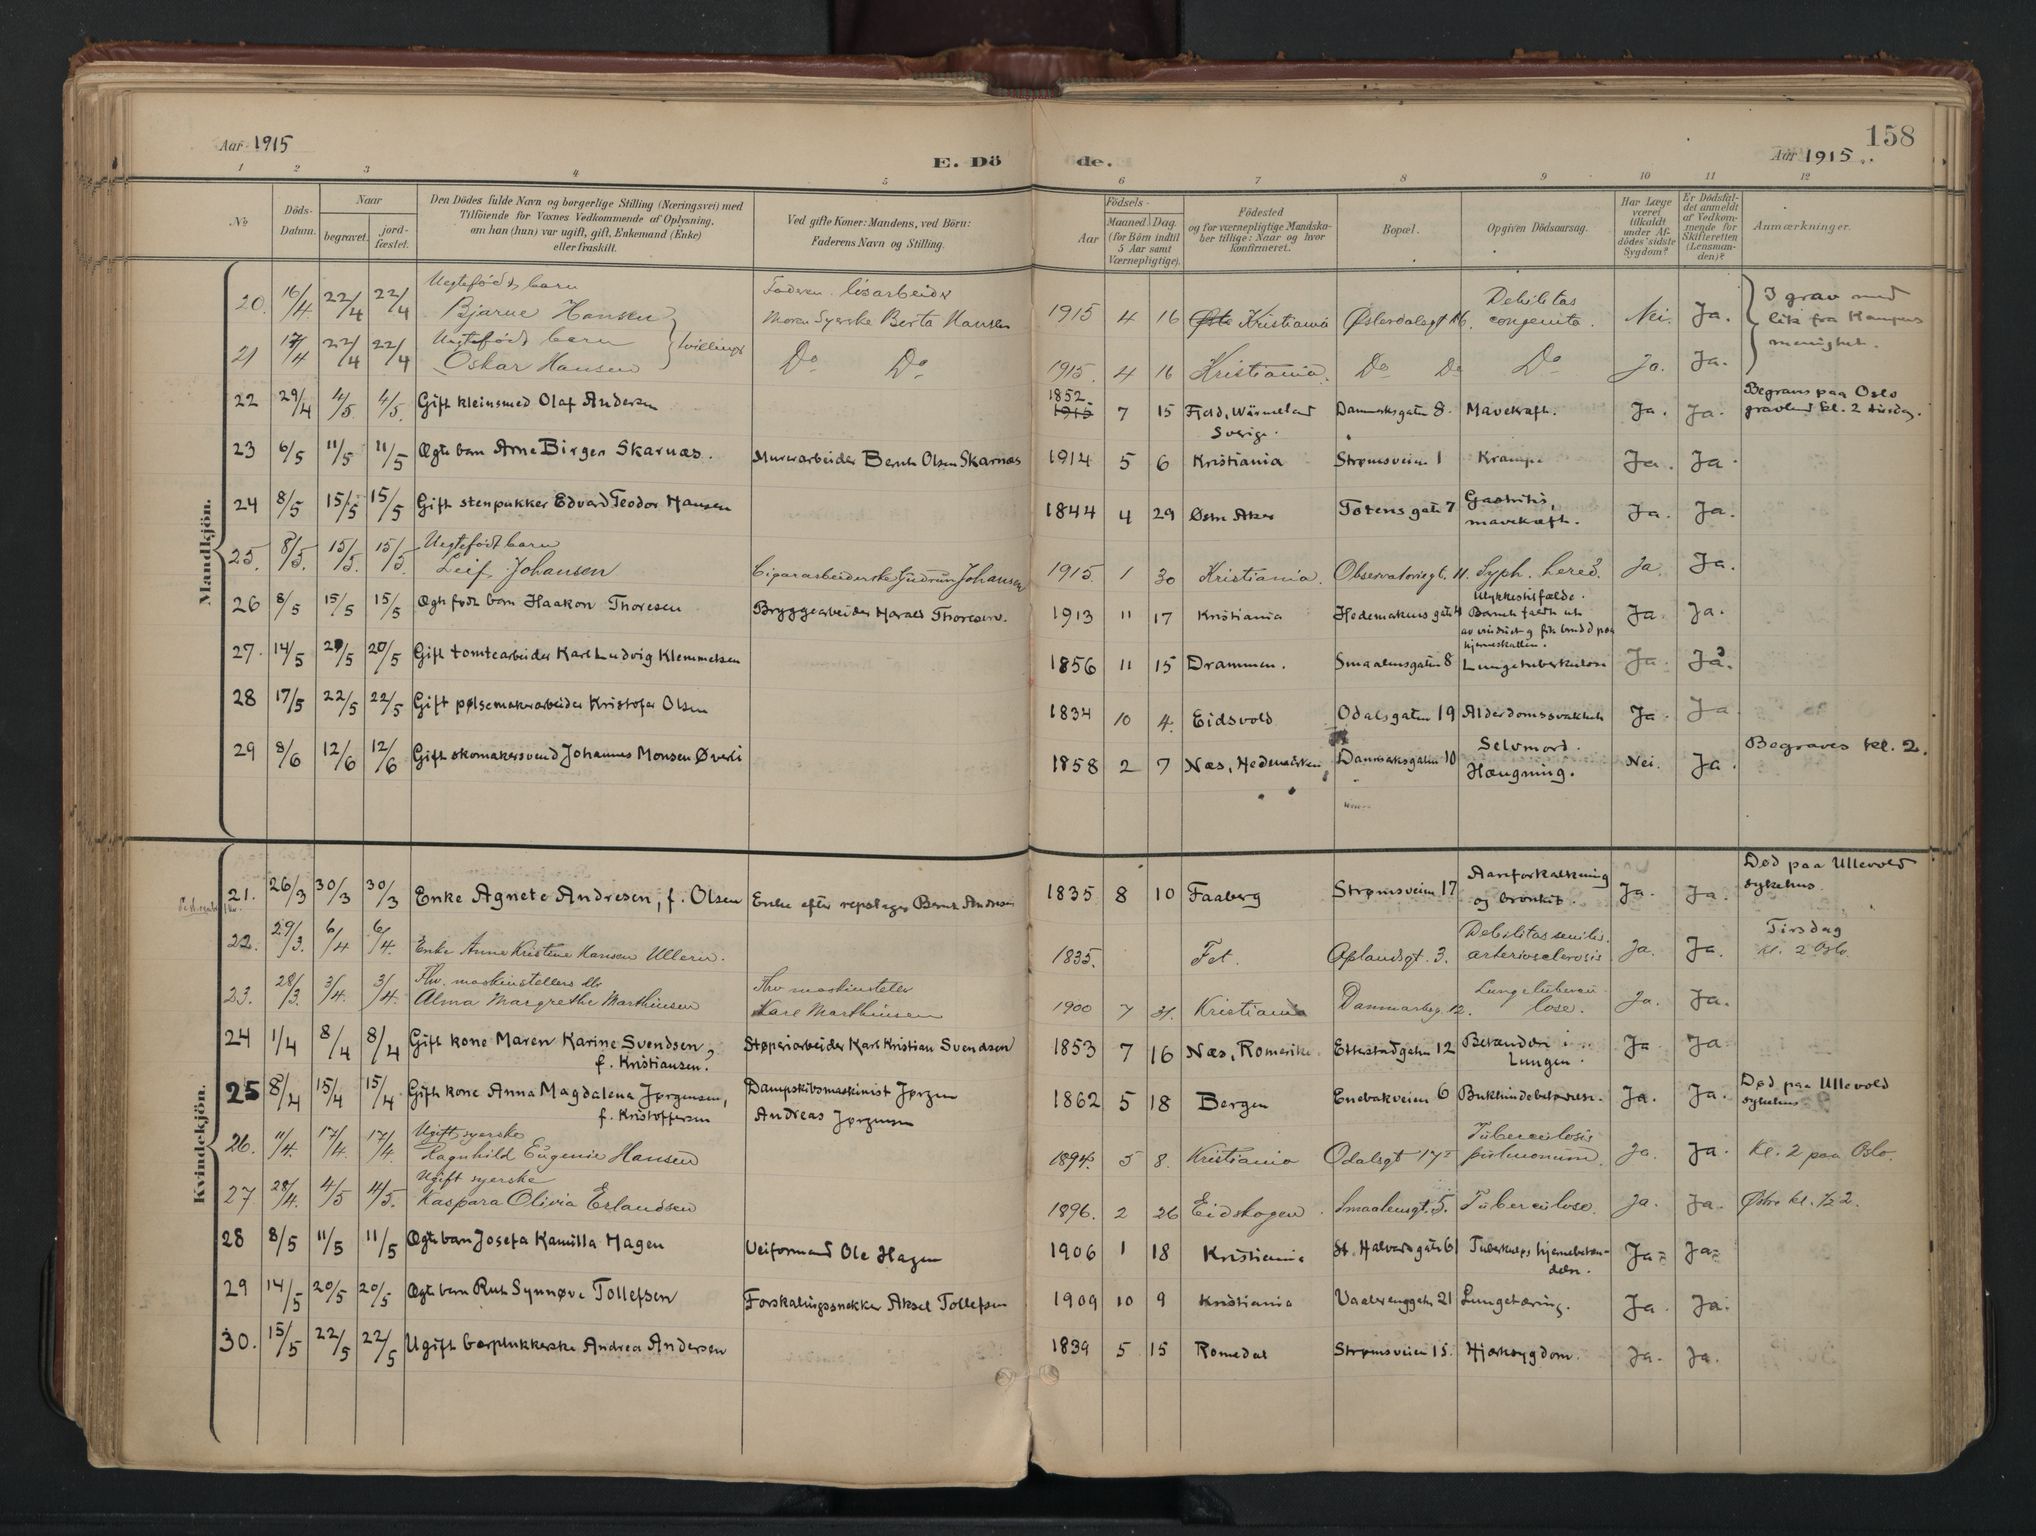 158
Aar 1915
E. Döde.
Aar 1915
1 2 3 4 5 6 7 8 9 10 11 12
No
Döds-Datum.
Naar
begravet.
jord-fæstet.
Den Dödes fulde Navn og borgerlige Stilling (Næringsvei) med
Tilföiende for Voxnes Vedkommende af Oplysning,
om han (hun) var ugift, gift, Enkemand (Enke)
eller fraskilt.
Ved gifte Koner: Mandens, ved Börn:
Faderens Navn og Stilling.
Födsels-
Aar
Maaned Dag
(for Börn indtil
5 Aar samt
Værnepligtige).
Födested
og for værnepligtige Mandska-
ber tillige: Naar og hvor
konfirmeret.
Bopæl.
Opgiven Dödsaarsag.
Har Læge
været
tilkaldt
under Af-
dödes sidste
Sygdom?
Er Dödsfal-
det anmeldt
af Vedkom-
mende for
Skifteretten
(Lensman-
den)?
Anmærkninger.
Mandkjön.
20. 16/4 22/4 22/4 Uegtefødt barn Bjarne Hansen Faderen Moren Syerske Berta Hansen 1915 4 16 Kristiania Østerdalsgt 16. Debilitas congenita. Nei. Ja. I grav med lik fra Kampens menighet.
21 17/4 22/4 22/4 Uegtefødt barn Oskar Hansen tvillinger Do Do 1915. 4 16 Kristiania. Do Do Do Ja. Ja.
22 29/4 4/5 4/5. Gift kleinsmed Olaf Andersen 1852 1915 7 15 Fjeld, Wärmeland Sverige. Danmarksgaten 8. Mavekræft. Ja. Ja. Begraves paa Oslo gravlund kl. 2 tirsdag.
23 6/5 11/5 11/5 Ægte barn Arne Birger Skarnæs. Murerarbeider Bernh Olsen Skarnæs 1914 5 6 Kristiania Strømsveien 1 Krampe Ja. Ja.
24 8/5 15/5 15/5 Gift stenpukker Edvard Teodor Hansen 1844 4 29 Østre Aker Totensgaten 7 Gastritis, mavekræft. Ja. Ja.
25. 8/5. 15/5. 15/5. Uegtefødt barn Leif Johansen Cigararbeiderske Gudrun Johansen 1915. 1 30 Kristiania. Observatoriegt. 11. Syph. hered. Ja. Ja.
26 8/5 15/5 15/5 Ægtefødt barn Haakon Thoresen Bryggearbeider Harald Thoresen. 1913 11 17 Kristiania Hedemarkens gate 4 Ulykkestilfælde. Barnet faldt ut av vinduet og fik brudd paa hjerneskallen. Ja. Ja.
27. 14/5 20/5 20/5 Gift tomtearbeider Karl Ludvig Klemmetsen 1856 11 15 Drammen. Smaalensgaten 8 Lungetuberkulose Ja. Ja.
28 17/5 22/5 22/5 Gift pølsemakerarbeider Kristofer Olsen 1834 10 4. Eidsvold Odalsgaten 19 Alderdomssvakhet Ja. Ja
29 8/6 12/6 12/6 Gift skomakersvend Johannes Monsen Øverli 1858 2 7 Næs, Hedemarken Danmarksgaten 10 Selvmord. Hængning. Nei. Ja. Begraves kl. 2.
Kvindekjön.
21. 26/3 30/3 30/3 Enke Agnete Andresen, f. Olsen Enke efter repslager Bernh. Andresen 1835 8 10 Faaberg Strømsveien 17 Aareforkalkning og bronkit. Ja. Ja. Død paa Ullevold sykehus.
22. 29/3. 6/4 6/4. Enke Anne Kristine Hansen Ullern. 1835. Fet. Oplandsgt. 3. Debilitas senilis. arteriosclerosis Ja. Ja. Tirsdag kl. 2 Oslo.
23. 28/3. 3/4. 3/4. Fhv. maskinstellers dtr Alma Margrethe Marthinsen Fhv maskinsteller Karl Marthinsen 1900 7 31. Kristiania Danmarksg. 12. Lungetuberculose. Ja. Ja.
24 1/4 8/4 8/4 Gift kone Maren Karine Svendsen, f. Kristiansen. Støperiarbeider Karl Kristian Svendsen 1853 7 16 Næs, Romerike. Etterstadgaten 12 Betændelse i Lungen. Ja Ja
25 8/4 15/4 15/4 Gift kone Anna Magdalena Jørgensen, f. Kristoffersen Dampskibsmaskinist Jørgen Andreas Jørgensen 1862 5 18 Bergen Enebakveien 6 Bukhindebetændelse. Ja. Ja. Død paa Ullevold sykehus
26. 11/4. 17/4. 17/4. Ugift syerske Ragnhild Eugenie Hansen 1894. 5 8. Kristiania Odalsgt 17 Tuberculosis pulmonum. Ja. Ja. Kl. 2 paa Oslo.
27 28/4. 4/5 4/5. Ugift syerske Kaspara Olivia Erlandsen 1896. 2 26 Eidskogen. Smaalensgt. 5. Tuberculose. Ja. Ja. Østre kl. 1/2 2.
28 8/5 11/5 11/5 Ægte barn Josefa Kamilla Hagen Veiformand Ole Hagen 1906 1 18 Kristiania St. Halvardsgate 61 Tuberkuløs hjernebetændelse. Ja Ja
29 14/5 20/5 20/5 Ægte barn Ruth Synnøve Tollefsen Forskalingssnekker Aksel Tollefsen 1909 10 9 Kristiania Vaalerenggaten 21 Lungetæring. Ja. Ja.
30. 15/5 22/5 22/5 Ugift bærplukkerske Andrea Andersen 1839 5 15 Romedal Strømsveien 15. Hjertesygdom. Ja. Ja.